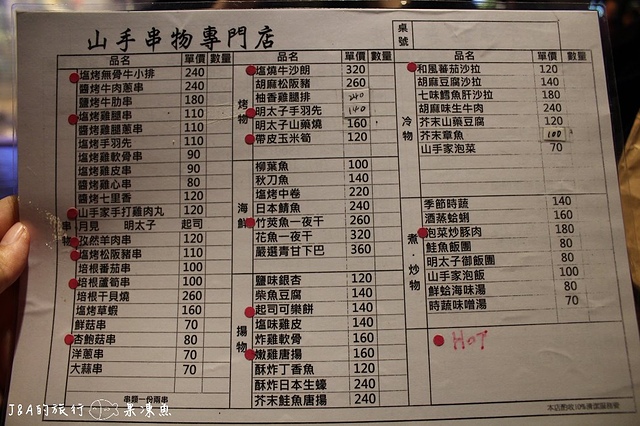 山手串物專門店
桌號
品名 單價 數量
塩烤無骨牛小排 240
醬烤牛肉蔥串 240
醬烤牛肋串 180
塩烤雞腿串 110
醬烤雞腿蔥串 110
塩烤手羽先 110
塩烤雞軟骨串 90
塩烤雞皮串 90
塩烤雞心串 80
醬烤七里香 120
山手家手打雞肉丸 120
月見 明太子 起司
孜然羊肉串 120
塩烤松阪豬串 110
培根番茄串 100
培根蘆筍串 100
培根干貝燒 260
塩烤草蝦 160
鮮菇串 70
杏鮑菇串 80
洋蔥串 70
大蒜串 70
串物
串類一份兩串
品名 單價 數量
烤物
塩燒牛沙朗 320
胡麻松阪豬 260
柚香雞腿排 240
明太子手羽先 140
明太子山藥燒 160
帶皮玉米筍 120
海鮮
柳葉魚 100
秋刀魚 140
塩烤中卷 220
日本鯖魚 240
竹筴魚一夜干 260
花魚一夜干 320
嚴選青甘下巴 360
揚物
鹽味銀杏 120
柴魚豆腐 140
起司可樂餅 140
塩味雞皮 140
炸雞軟骨 160
嫩雞唐揚 160
酥炸丁香魚 120
酥炸日本生蠔 240
芥末鮭魚唐揚 240
品名 單價 數量
冷物
和風蕃茄沙拉 120
胡麻豆腐沙拉 140
七味鱈魚肝沙拉 180
胡麻味生牛肉 240
芥末山藥豆腐 120
芥末章魚 100
山手家泡菜 70
煮·炒物
季節時蔬 140
酒蒸蛤蜊 160
泡菜炒豚肉 180
鮭魚飯團 80
明太子御飯團 80
山手家泡飯 100
鮮蛤海味湯 80
時蔬味噌湯 70
HOT
本店酌收10%清潔服務費
J&A的旅行 果凍魚